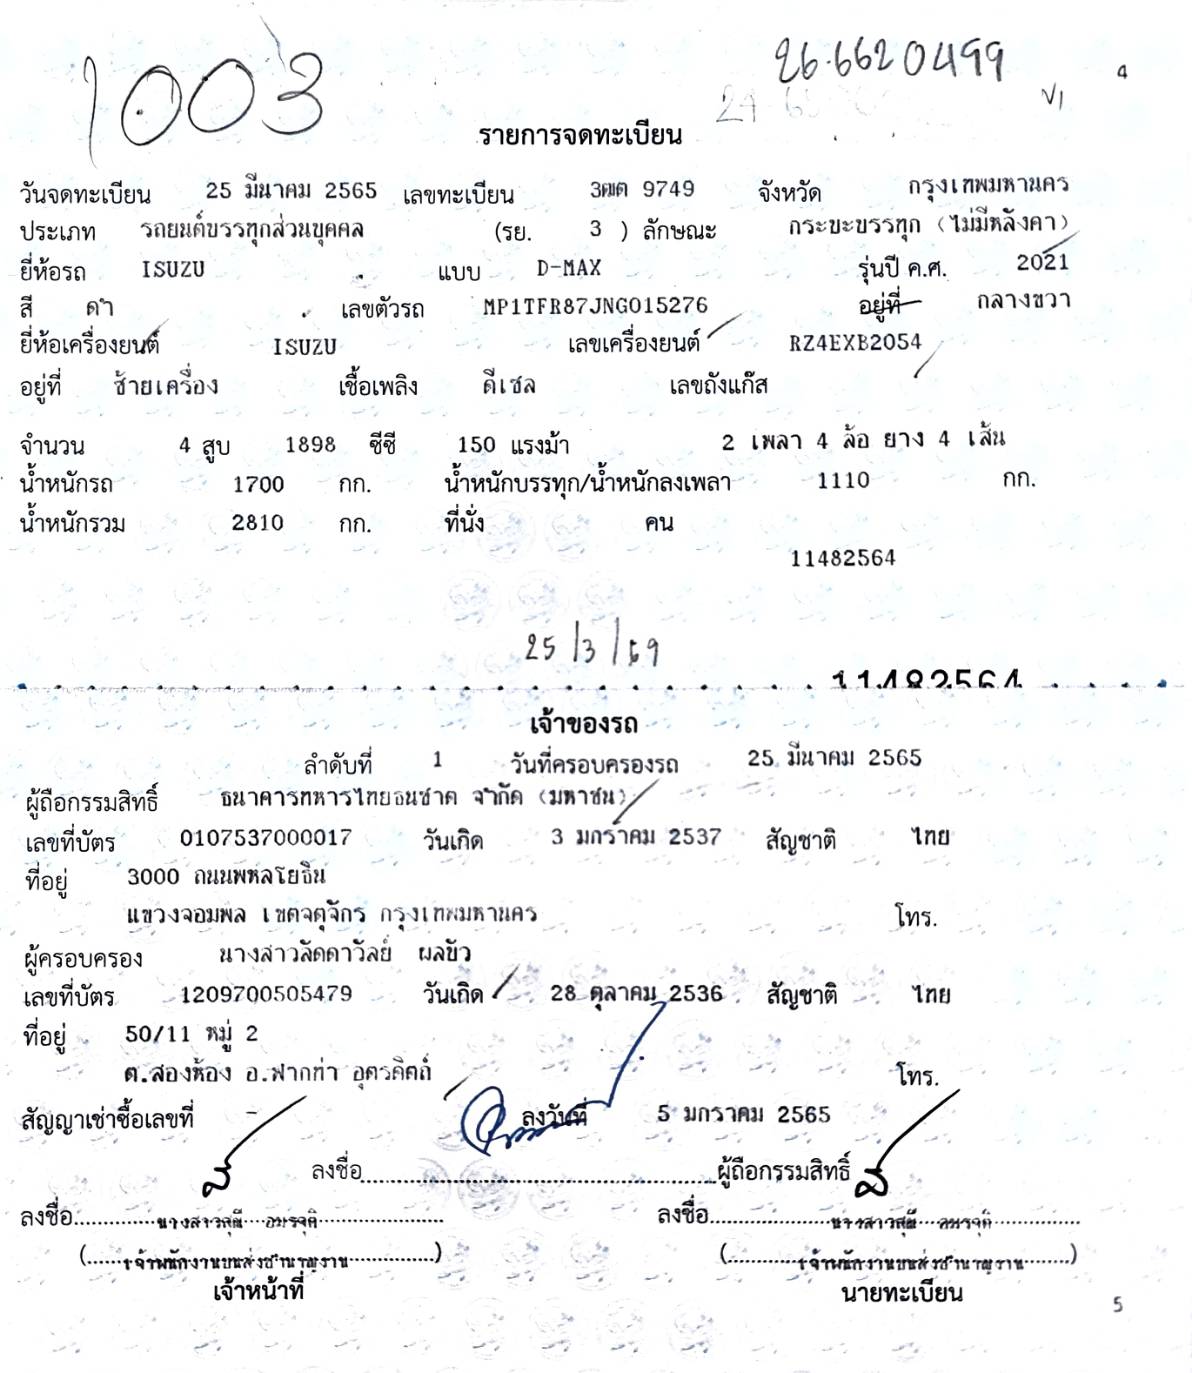 1003
26.6620499
4
V1
รายการจดทะเบียน
วันจดทะเบียน 25 มีนาคม 2565 เลขทะเบียน 3ฒต 9749 จังหวัด กรุงเทพมหานคร
ประเภท รถยนต์บรรทุกส่วนบุคคล (รย. 3 ) ลักษณะ กระบะบรรทุก (ไม่มีหลังคา)
ยี่ห้อรถ ISUZU แบบ D-MAX รุ่นปี ค.ศ. 2021
สี ดำ เลขตัวรถ MP1TFR87JNG015276 อยู่ที่ กลางขวา
ยี่ห้อเครื่องยนต์ ISUZU เลขเครื่องยนต์ RZ4EXB2054
อยู่ที่ ซ้ายเครื่อง เชื้อเพลิง ดีเซล เลขถังแก๊ส
จำนวน 4 สูบ 1898 ซีซี 150 แรงม้า 2 เพลา 4 ล้อ ยาง 4 เส้น
น้ำหนักรถ 1700 กก. น้ำหนักบรรทุก/น้ำหนักลงเพลา 1110 กก.
น้ำหนักรวม 2810 กก. ที่นั่ง คน
11482564
25/3/69
11482564
เจ้าของรถ
ลำดับที่ 1 วันที่ครอบครองรถ 25 มีนาคม 2565
ผู้ถือกรรมสิทธิ์ ธนาคารทหารไทยธนชาต จำกัด (มหาชน)
เลขที่บัตร 0107537000017 วันเกิด 3 มกราคม 2537 สัญชาติ ไทย
ที่อยู่ 3000 ถนนพหลโยธิน
แขวงจอมพล เขตจตุจักร กรุงเทพมหานคร โทร.
ผู้ครอบครอง นางสาวลัดดาวัลย์ ผลขัว
เลขที่บัตร 1209700505479 วันเกิด 28 ตุลาคม 2536 สัญชาติ ไทย
ที่อยู่ 50/11 หมู่ 2
ต.สองห้อง อ.ฟากท่า อุตรดิตถ์ โทร.
สัญญาเช่าซื้อเลขที่ - ลงวันที่ 5 มกราคม 2565
ลงชื่อ ผู้ถือกรรมสิทธิ์
ลงชื่อ นางสาวสุณี อมรจุติ ลงชื่อ นางสาวสุณี อมรจุติ
(เจ้าพนักงานขนส่งชำนาญงาน) (เจ้าพนักงานขนส่งชำนาญงาน)
เจ้าหน้าที่ นายทะเบียน
5